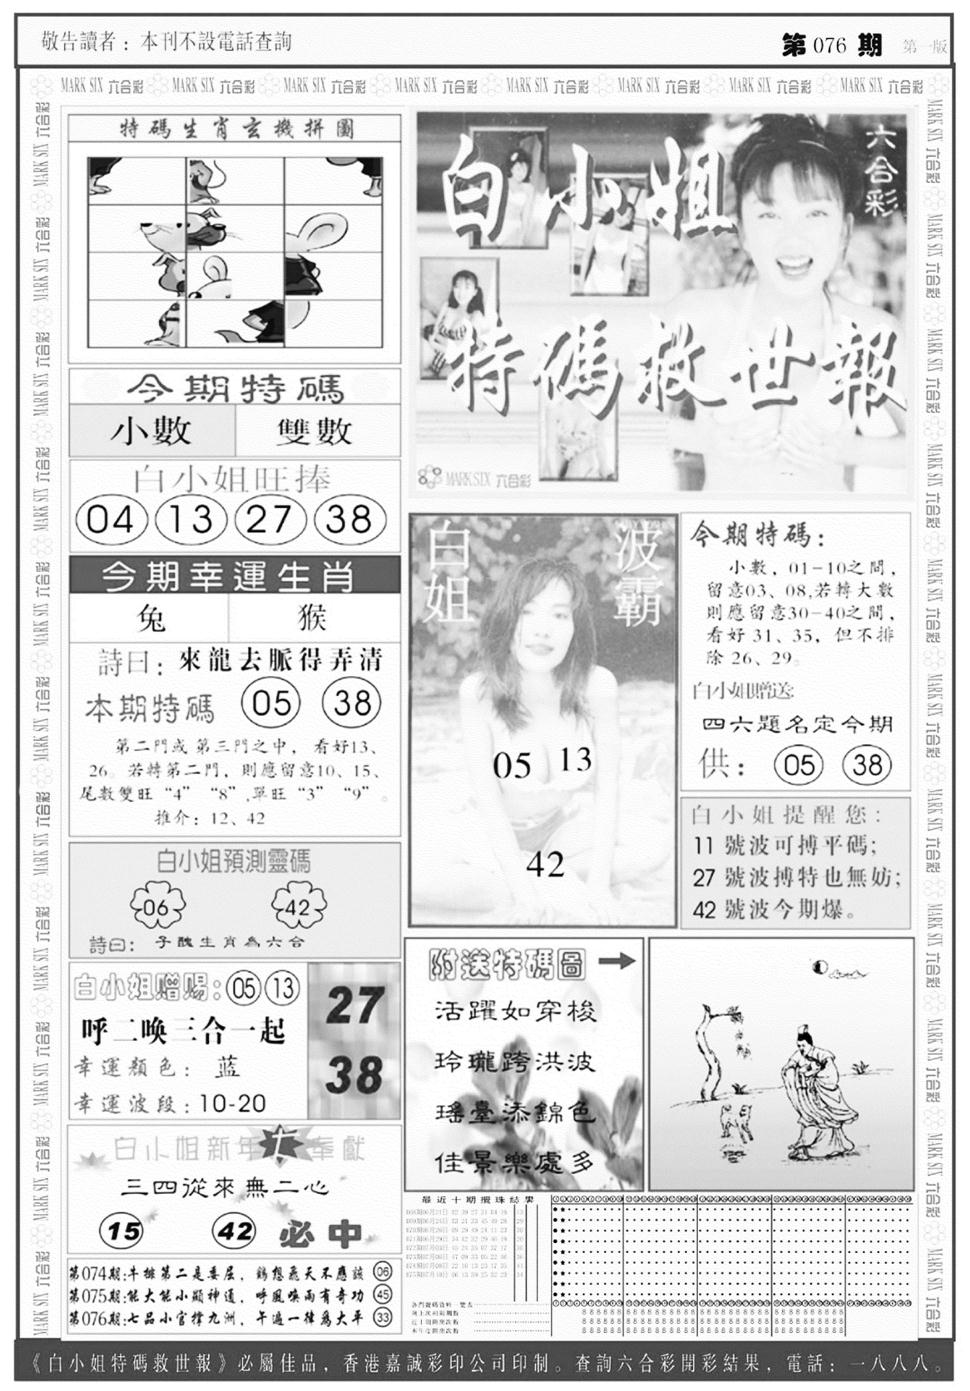 敬告讀者：本刊不設電話查詢
第 076 期 第一版
MARK SIX 六合彩 MARK SIX 六合彩 MARK SIX 六合彩 MARK SIX 六合彩 MARK SIX 六合彩 MARK SIX 六合彩 MARK SIX 六合彩 MARK SIX 六合彩
特碼生肖玄機拼圖
今期特碼
小數 雙數
白小姐旺捧
04 13 27 38
今期幸運生肖
兔 猴
詩曰：來龍去脈得弄清
本期特碼 05 38
第二門或第三門之中，看好13、
26。若轉第二門，則應留意10、15、
尾數雙旺“4”“8”,單旺“3”“9”。
推介：12、42
白小姐預測靈碼
06 42
詩曰：子醜生肖為六合
白小姐赠赐：05 13
呼二唤三合一起
幸運顏色：蓝
幸運波段：10-20
27
38
白小姐新年 奉獻
三四從來無二心
15 42 必中
第074期:牛排第二是委屈，鷄想飛天不應該 06
第075期:能大能小顯神通，呼風喚雨有奇功 45
第076期:七品小官撐九洲，午過一律為太平 33
六合彩
白小姐
特碼救世報
MARK SIX 六合彩
白姐 波霸
05 13
42
今期特碼：
小數，01-10之間，
留意03、08,若轉大數
則應留意30-40之間，
看好31、35，但不排
除26、29。
白小姐贈送:
四六題名定今期
供： 05 38
白小姐提醒您：
11 號波可搏平碼；
27 號波搏特也無妨；
42 號波今期爆。
附送特碼圖
活躍如穿梭
玲瓏跨洪波
瑤臺添錦色
佳景樂處多
最近十期攪珠結果
《白小姐特碼救世報》必屬佳品，香港嘉誠彩印公司印制。查詢六合彩開彩結果，電話：一八八八。